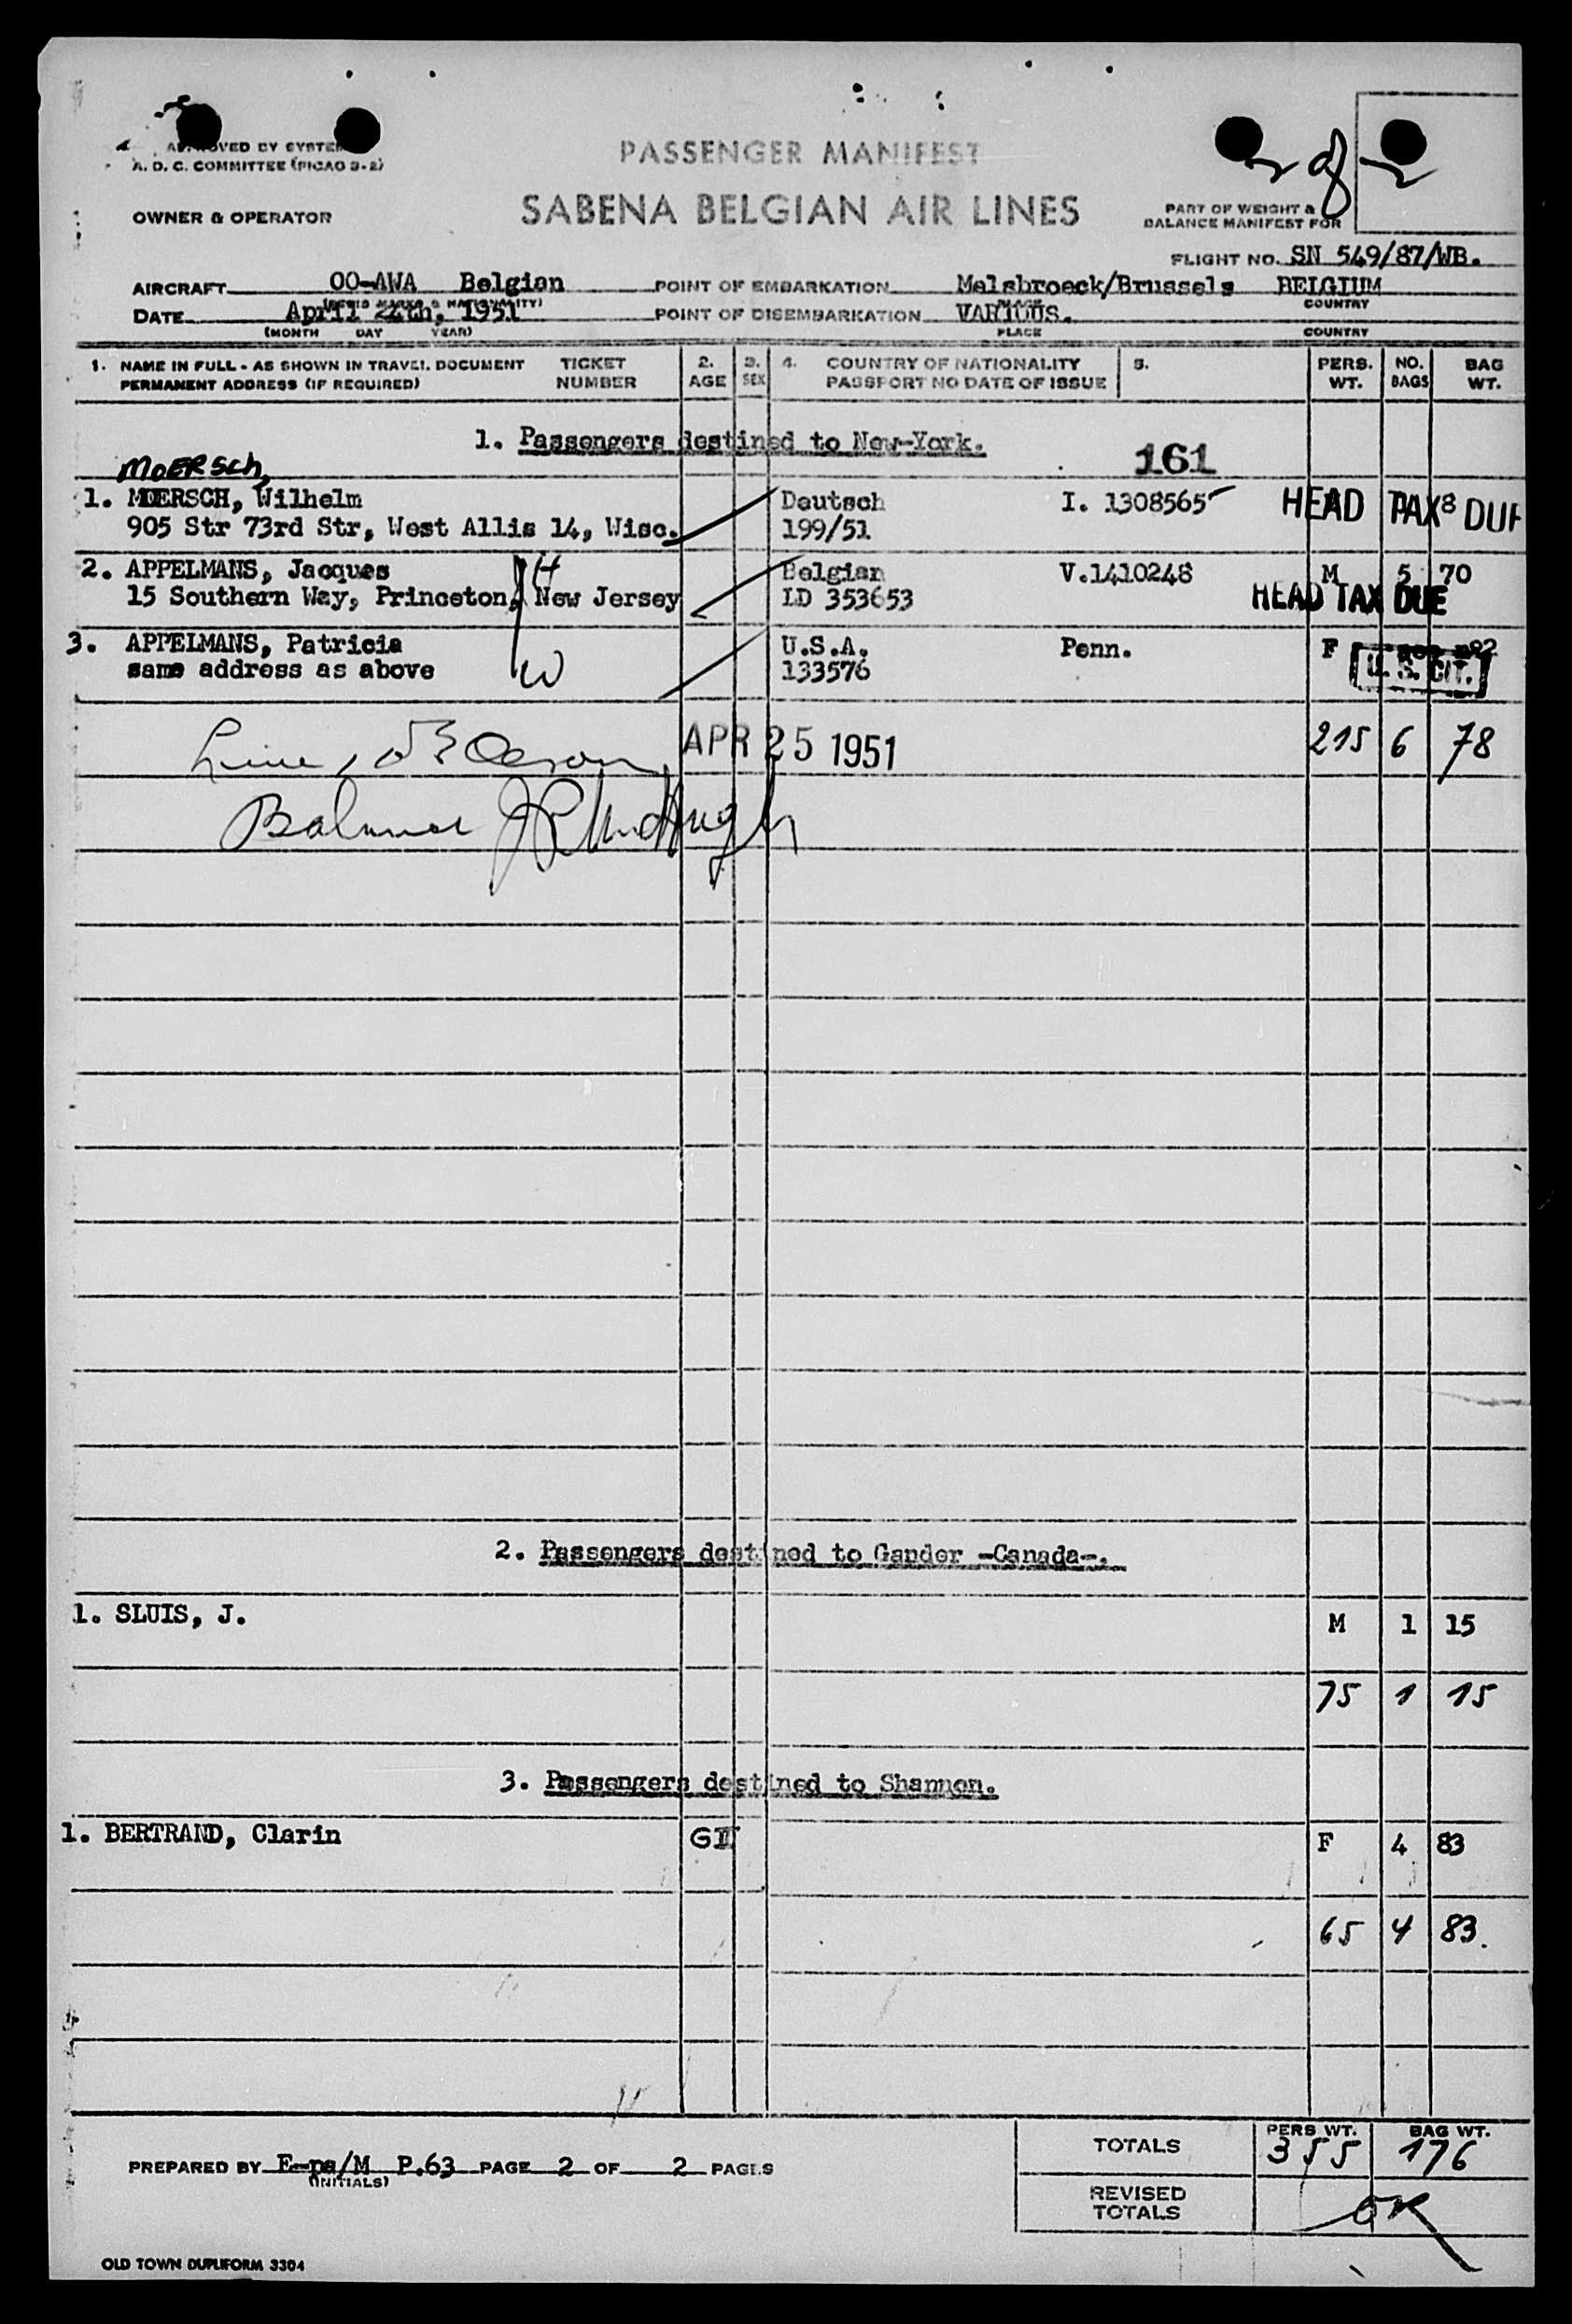 APPROVED BY SYSTEM
A. D. C. COMMITTEE (PICAO 3-2)
PASSENGER MANIFEST
2 of 2
OWNER & OPERATOR
SABENA BELGIAN AIR LINES
PART OF WEIGHT &
BALANCE MANIFEST FOR
FLIGHT NO. SN 549/87/WB.
AIRCRAFT OO-AWA Belgian POINT OF EMBARKATION Melsbroeck/Brussels BELGIUM
(REG'D MARKS & NATIONALITY) PLACE COUNTRY
DATE April 24th, 1951 POINT OF DISEMBARKATION VARIOUS.
(MONTH DAY YEAR) PLACE COUNTRY
1. NAME IN FULL - AS SHOWN IN TRAVEL DOCUMENT TICKET 2. 3. 4. COUNTRY OF NATIONALITY 5. PERS. NO. BAG
PERMANENT ADDRESS (IF REQUIRED) NUMBER AGE SEX PASSPORT NO DATE OF ISSUE WT. BAGS WT.
1. Passengers destined to New-York.
161
MOERSch,
1. MOERSCH, Wilhelm Deutsch I. 1308565 HEAD TAX 8 DUE
905 Str 73rd Str, West Allis 14, Wisc. 199/51
2. APPELMANS, Jacques H Belgian V.1410248 M 5 70
15 Southern Way, Princeton, New Jersey LD 353653 HEAD TAX DUE
3. APPELMANS, Patricia U.S.A. Penn. F nº2
same address as above W 133576 U. S. CIT.
APR 25 1951 215 6 78
2. Passengers destined to Gander -Canada-.
1. SLUIS, J. M 1 15
75 1 15
3. Passengers destined to Shannon.
1. BERTRAND, Clarin GI F 4 83
65 4 83.
TOTALS PERS WT. BAG WT.
355 176
PREPARED BY E-pa/M P.63 PAGE 2 OF 2 PAGES
(INITIALS)
REVISED
TOTALS OK
OLD TOWN DUPLIFORM 3304